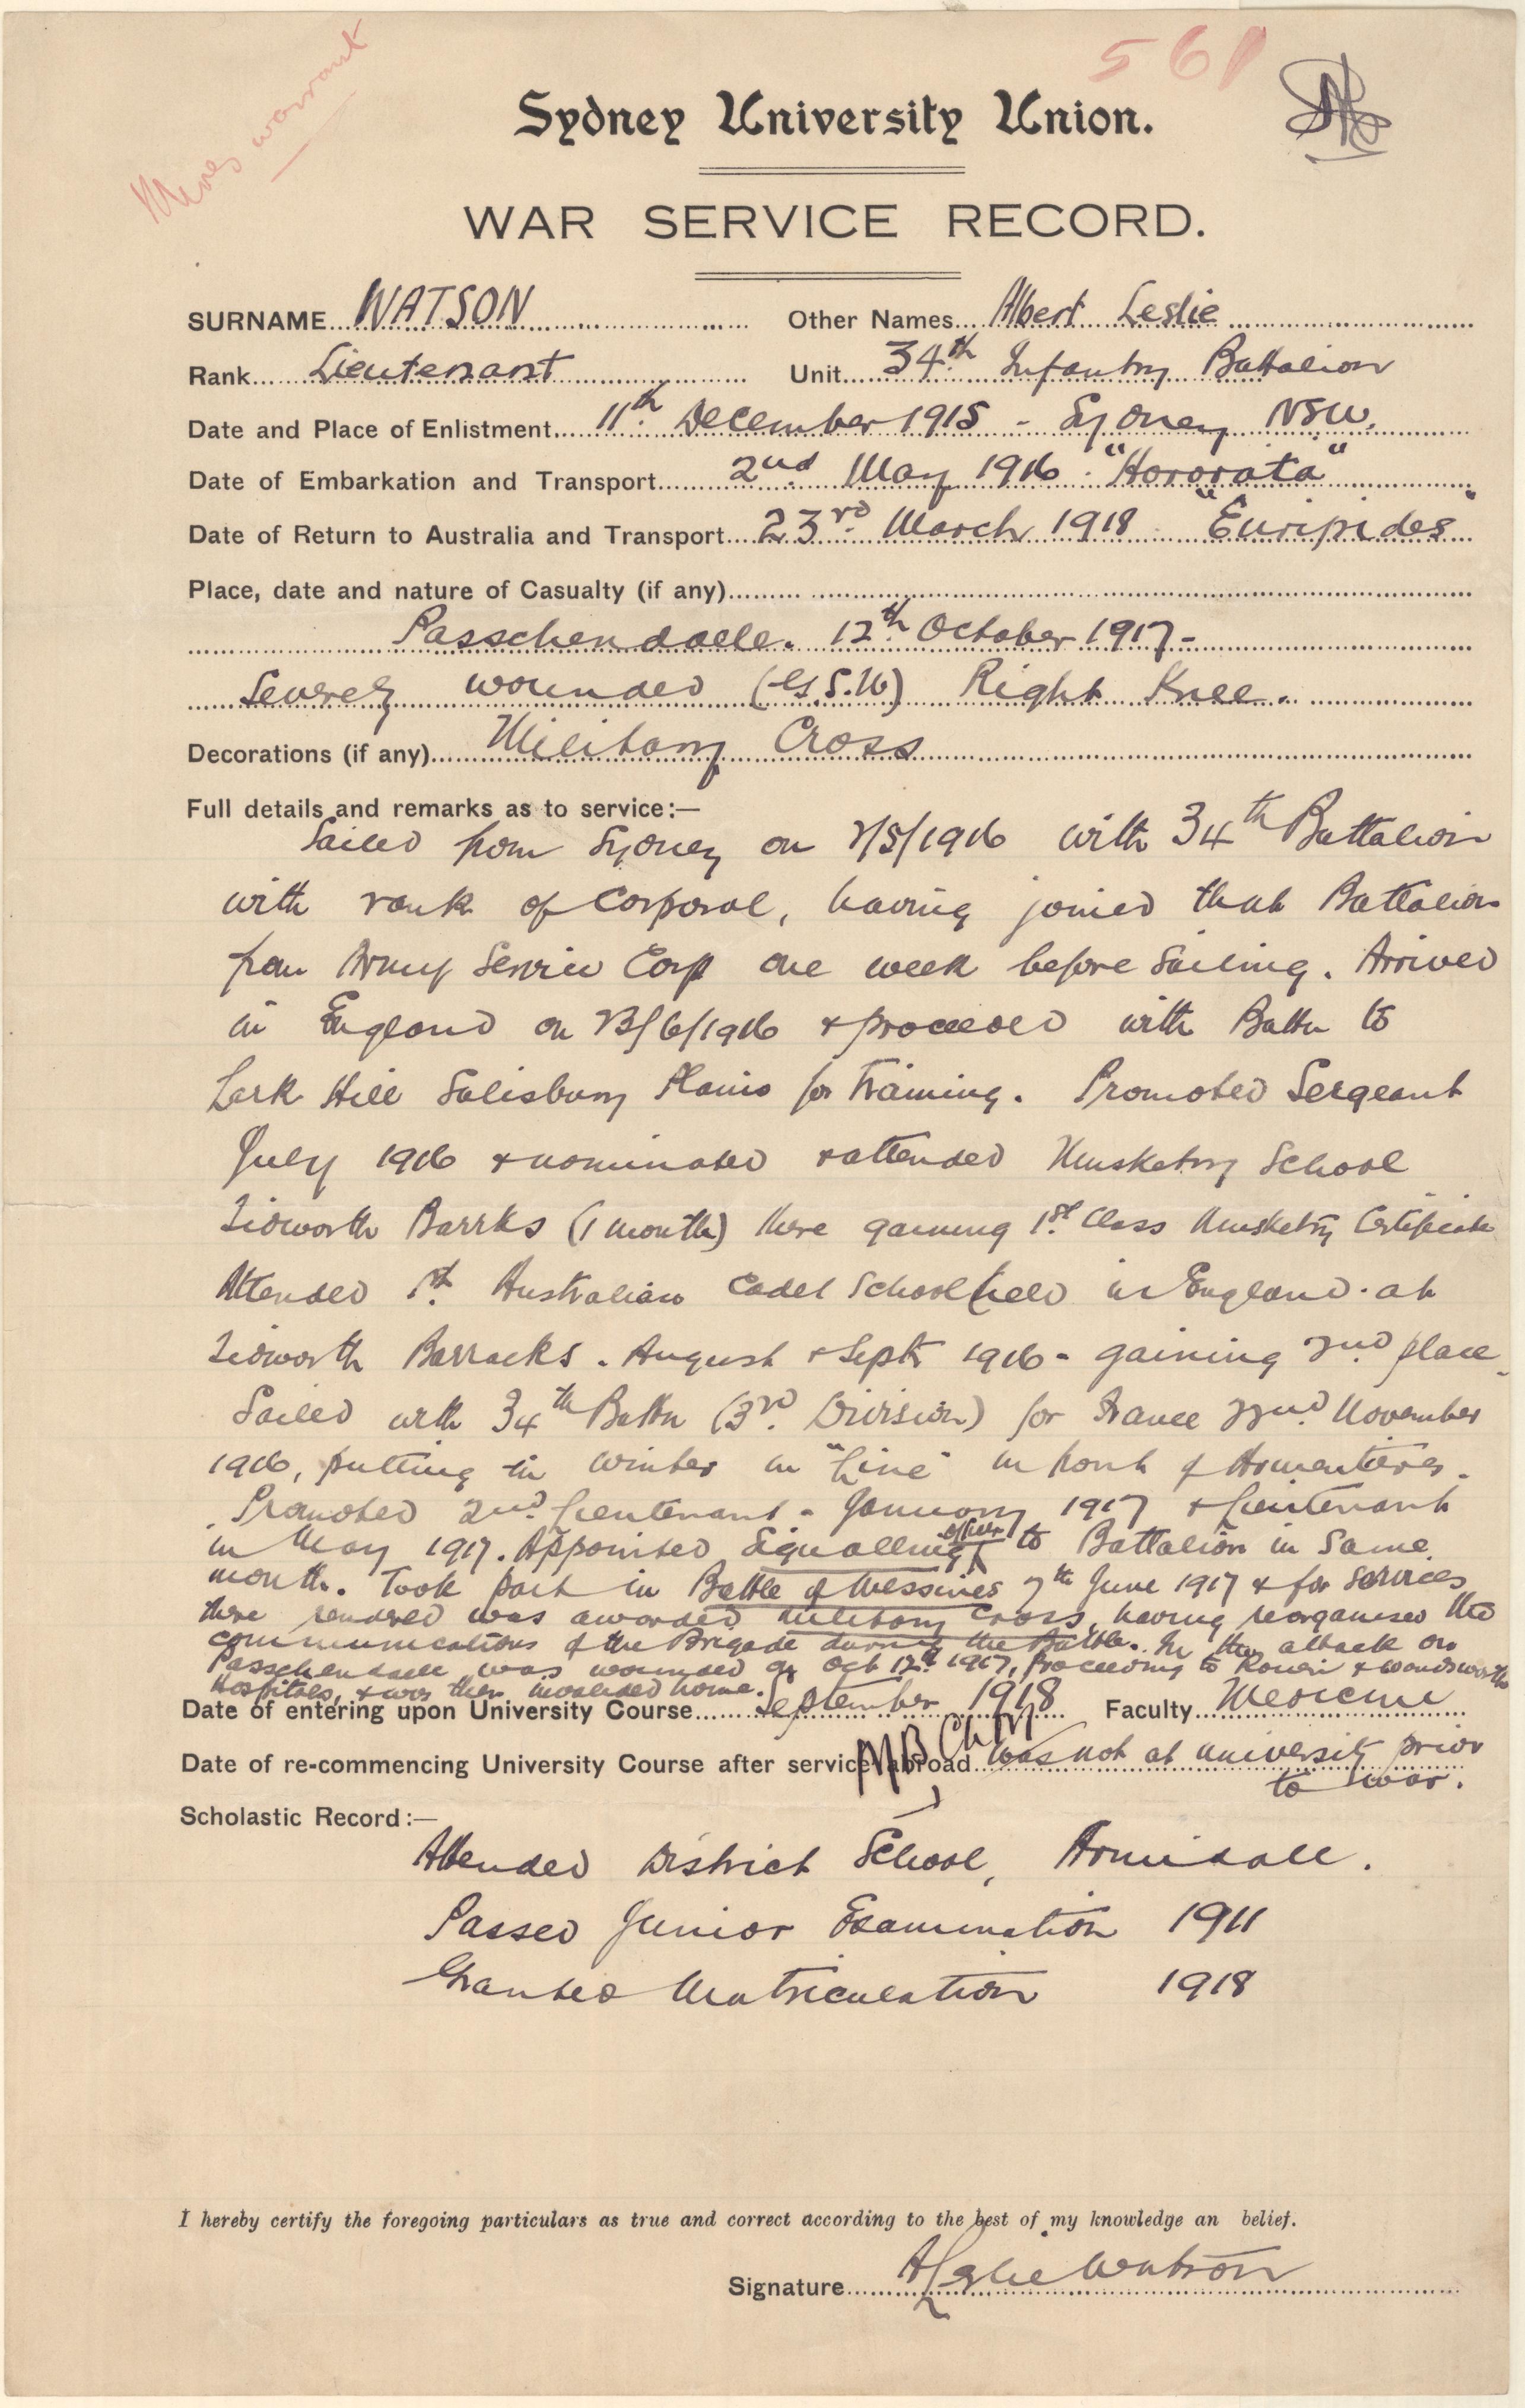 561
Sydney University Union.
warrant
WAR SERVICE RECORD.
SURNAME WATSON Other Names Albert Leslie
Rank Lieutenant Unit 34th Infantry Battalion
Date and Place of Enlistment 11th December 1915 - Sydney NSW.
Date of Embarkation and Transport 2nd May 1916. "Hororata"
Date of Return to Australia and Transport 23rd March 1918 "Euripides"
Place, date and nature of Casualty (if any)
Passchendaele. 12th October 1917 -
Severely wounded (G.S.W) Right Knee.
Decorations (if any) Military Cross
Full details and remarks as to service:—
Sailed from Sydney on 2/5/1916 with 34th Battalion
with rank of Corporal, having joined that Battalion
from Army Service Corp one week before sailing. Arrived
in England on 23/6/1916 & proceeded with Battn to
Lark Hill Salisbury Plains for training. Promoted Sergeant
July 1916 & nominated & attended Musketry School
Tidworth Barrks (1 month) there gaining 1st Class Musketry Certificate
Attended 1st Australian Cadet School held in England at
Tidworth Barracks. August & Sept 1916 - gaining 2nd place.
Sailed with 34th Battn (3rd Division) for France 22nd November
1916, putting in winter in "Line" in front of Armentieres.
Promoted 2nd Lieutenant - January 1917 & Lieutenant
in May 1917. Appointed Signalling officer to Battalion in same
month. Took part in Battle of Messines 7th June 1917 & for services
there rendered was awarded Military Cross, having reorganised the
communications of the Brigade during the Battle. In the attack on
Passchendaele was wounded on Oct 12th 1917, proceeding to Rouen & Wandsworth
Hospitals, & was then invalided home.
Date of entering upon University Course September 1918 Faculty Medicine
MB ChM
Date of re-commencing University Course after service abroad was not at University prior
to war.
Scholastic Record:—
Attended District School, Armidale.
Passed Junior Examination 1911
Granted Matriculation 1918
I hereby certify the foregoing particulars as true and correct according to the best of my knowledge an belief.
Signature A Leslie Watson